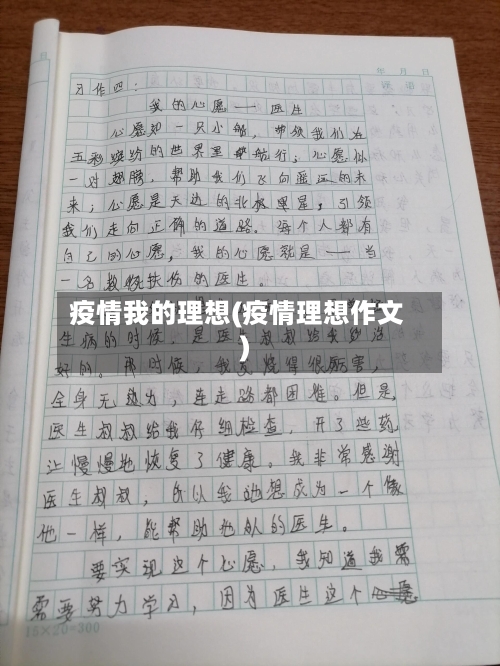 年 月 日
习作四：
我的心愿——医生
心愿如一只小船，带领我们在
五彩缤纷的世界里航行；心愿似
一对翅膀，帮助我们飞向遥远的未
来；心愿是天边的北极星，引领
我们走向正确的道路。每个人都有
自己的心愿，我的心愿就是——当
一名救死扶伤的医生。
疫情我的理想(疫情理想作文
)
生病的时候，是医生叔叔给我
好的。那时候，我发烧得很厉害，
全身无力，连走路都困难。但是，
医生叔叔给我仔细检查，开了些药，
让慢慢地恢复了健康。我非常感谢
医生叔叔，所以我也想成为一个像
他一样，能帮助他人的医生。
要实现这个心愿，我知道我需
需要努力学习，因为医生这个心愿
15×20=300